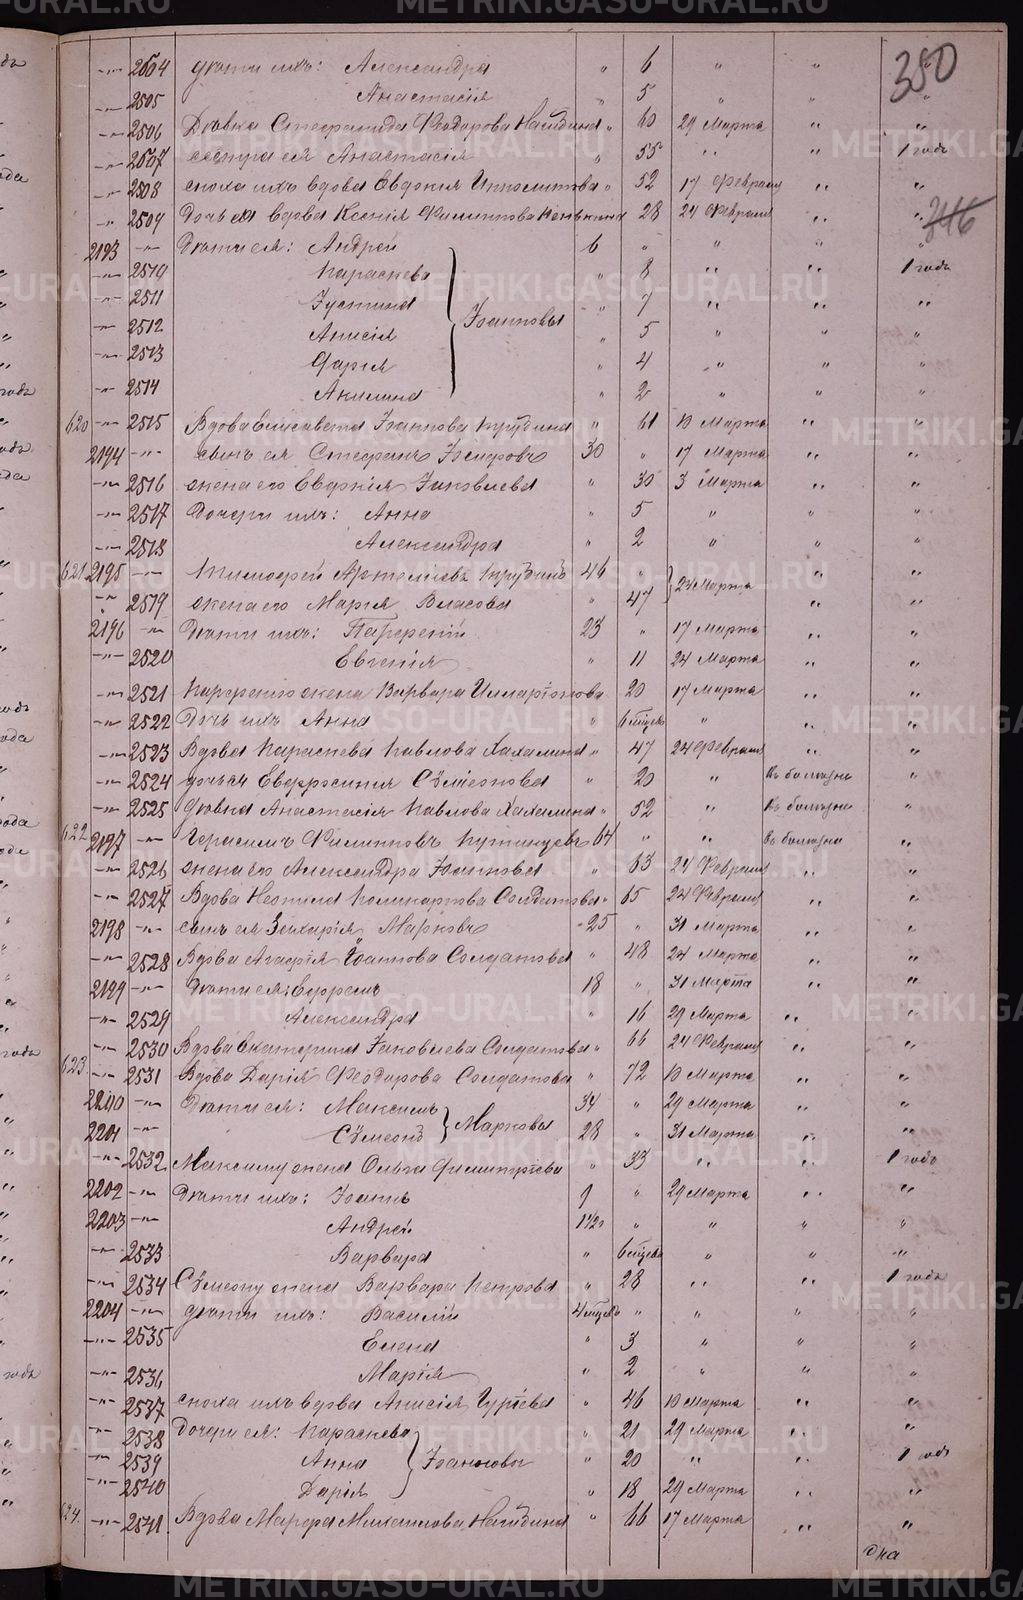 METRIKI.GASO-URAL.RU
350
-"- 2504 дѣти ихъ: Александра " 6 " " "
-"- 2505 Анастасія " 5 " " "
-"- 2506 Дѣвка Стефанида Ѳеодорова Нагидина " 60 29 Марта " "
-"- 2507 сестра ея Анастасія " 55 " " 1 годъ
-"- 2508 сноха ихъ вдова Евдокія Ипполитова " 52 17 Февраля " "
-"- 2509 Дочь ея вдова Ксенія Филиппова " 28 24 Февраля " "
316
2193 -"- Дѣти ея: Андрей 6 " " " "
-"- 2510 Параскева " 8 " " 1 годъ
-"- 2511 Іустина " 7 " " "
Іоанновы
-"- 2512 Анисія " 5 " " "
-"- 2513 Дарія " 4 " " "
-"- 2514 Акилина " 2 " " "
620 -"- 2515 Вдова Елисавета Іоаннова Прудина " 61 10 Марта " "
2194 -"- сынъ ея Стефанъ Исидоровъ 30 " 17 Марта " "
-"- 2516 жена его Евдокія Іаковлева " 30 3 Марта " "
-"- 2517 Дочери ихъ: Анна " 5 " " "
-"- 2518 Александра " 2 " " "
621 2195 -"- Тимофей Артемьевъ Прудинъ 46 " 24 Марта " "
-"- 2519 жена его Марія Власова " 47 " "
2196 -"- Дѣти ихъ: Парфеній 23 " 17 Марта " "
-"- 2520 Евгенія " 11 24 Марта " "
-"- 2521 Парфенію жена Варвара Илларіонова " 20 17 Марта " "
-"- 2522 Дочь ихъ Анна " 6 мцевъ " " "
-"- 2523 Вдова Параскева Павлова Хахалина " 47 24 Февраля " "
-"- 2524 дочь ея Евфросинія Сѵмеонова " 20 " въ болѣзни "
-"- 2525 дѣвка Анастасія Павлова Хахалина " 52 " въ болѣзни "
622 2197 -"- Герасимъ Филипповъ 64 " " въ болѣзни "
-"- 2526 жена его Александра Іоаннова " 63 24 Февраля " "
-"- 2527 Вдова Неонила Поликарпова Солдатова " 65 24 Февраля " "
2198 -"- сынъ ея Захарія Марковъ 25 " 31 Марта " "
-"- 2528 Вдова Агафія Іоаннова Солдатова " 48 24 Марта " "
2199 -"- Дѣти ея: Ефремъ 18 " 31 Марта " "
-"- 2529 Александра " 16 29 Марта " "
-"- 2530 Вдова Екатерина Іаковлева Солдатова " 66 24 Февраля " "
623 -"- 2531 Вдова Дарія Ѳеодорова Солдатова " 72 10 Марта " "
2200 -"- Дѣти ея: Максимъ 34 " 29 Марта " "
Марковы
2201 -"- Сѵмеонъ 28 " 31 Марта " "
-"- 2532 Максиму жена Ольга Димитріева " 33 " " 1 годъ
2202 -"- Дѣти ихъ: Іоаннъ 9 " 29 Марта " "
2203 -"- Андрей 1 1/2 " " " "
-"- 2533 Варвара " 6 мцевъ " " "
-"- 2534 Сѵмеону жена Варвара Петрова " 28 " " 1 годъ
2204 -"- дѣти ихъ: Василій 4 мцевъ " " " "
-"- 2535 Елена " 3 " " "
-"- 2536 Марія " 2 " " "
-"- 2537 сноха ихъ вдова Анисія Гуріева " 46 10 Марта " "
-"- 2538 Дочери ея: Параскева " 21 29 Марта " "
-"- 2539 Анна Іоанновы " 20 " " 1 годъ
-"- 2540 Дарія " 18 29 Марта " "
624. -"- 2541 Вдова Марфа Михаилова Нагидина " 66 17 Марта " "